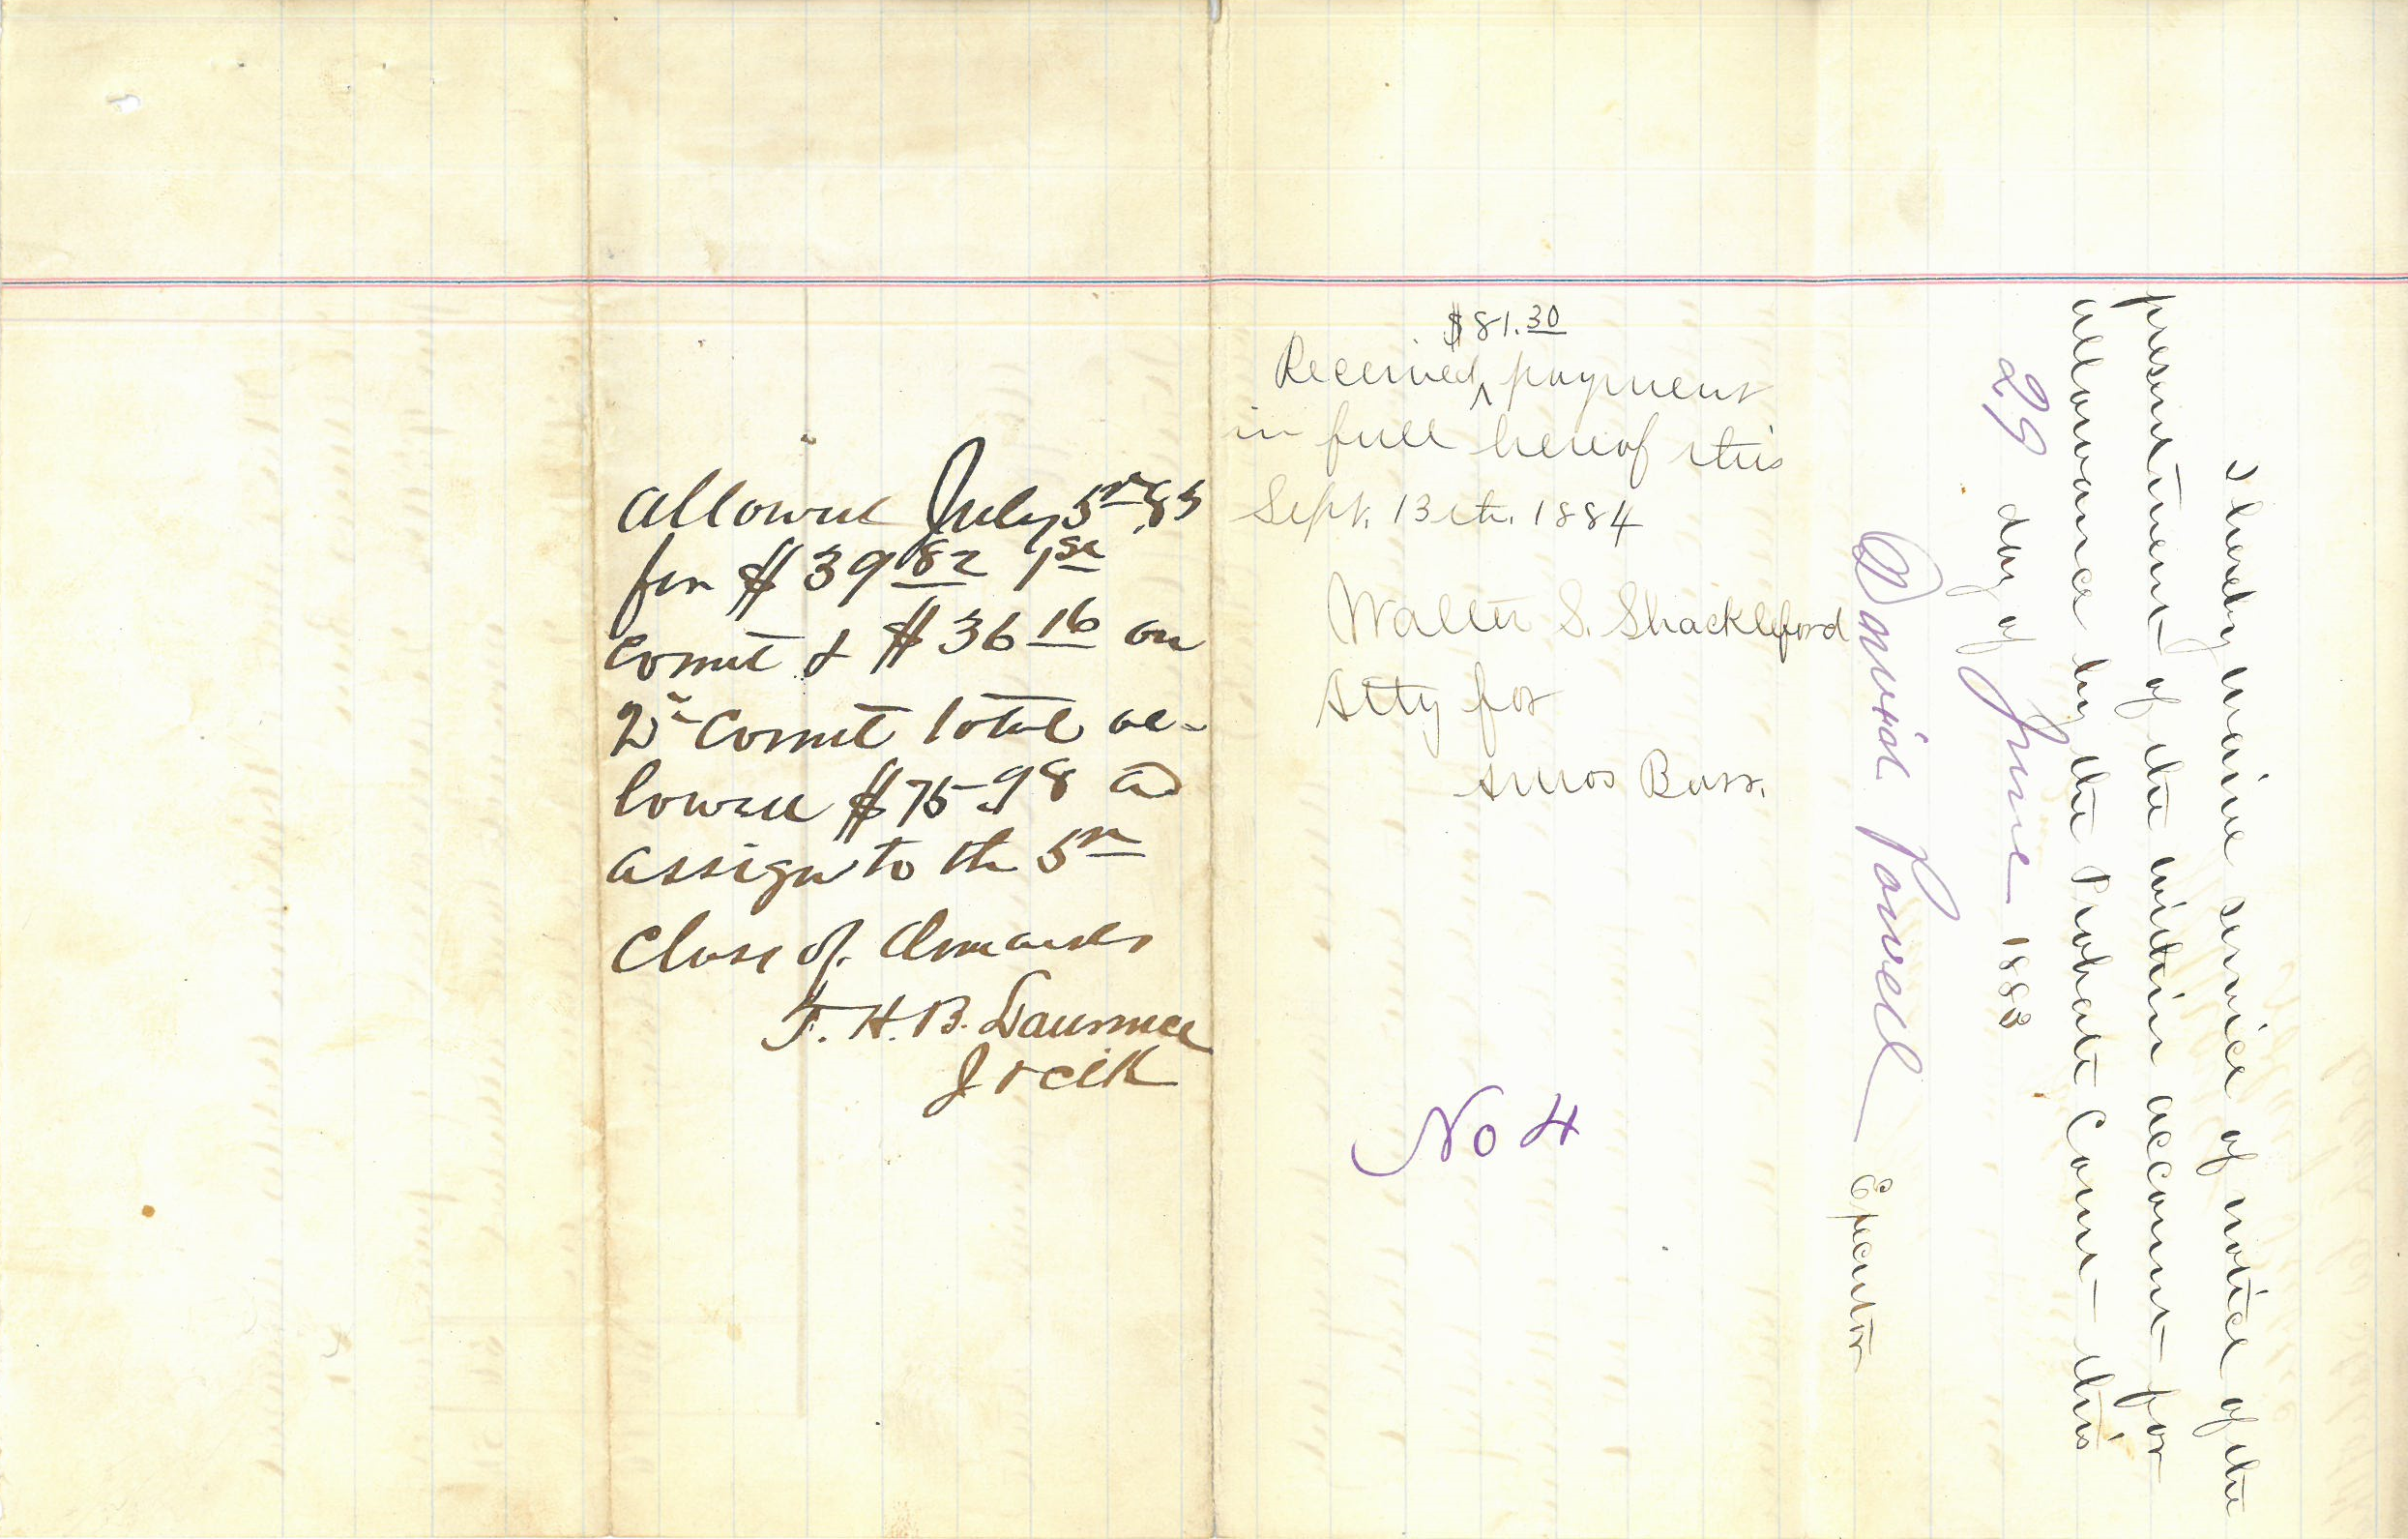 allowed July 5th 83
for $39 82 1st
Count & $36 16 on
2d Count total al-
lowed $75-98 and
assign to the 5th
Class of demands
T. H. B. Lawrence
J & clk
$81.30
Received ^ payment
in full hereof this
Sept. 13th. 1884
Walter S. Shackleford
Atty for
Amos Buss.
No 4
I hereby waive service of notice of the
presentment of the within account for
allowance by the Probate Court this
29 day of June 1883
David Powell Executor